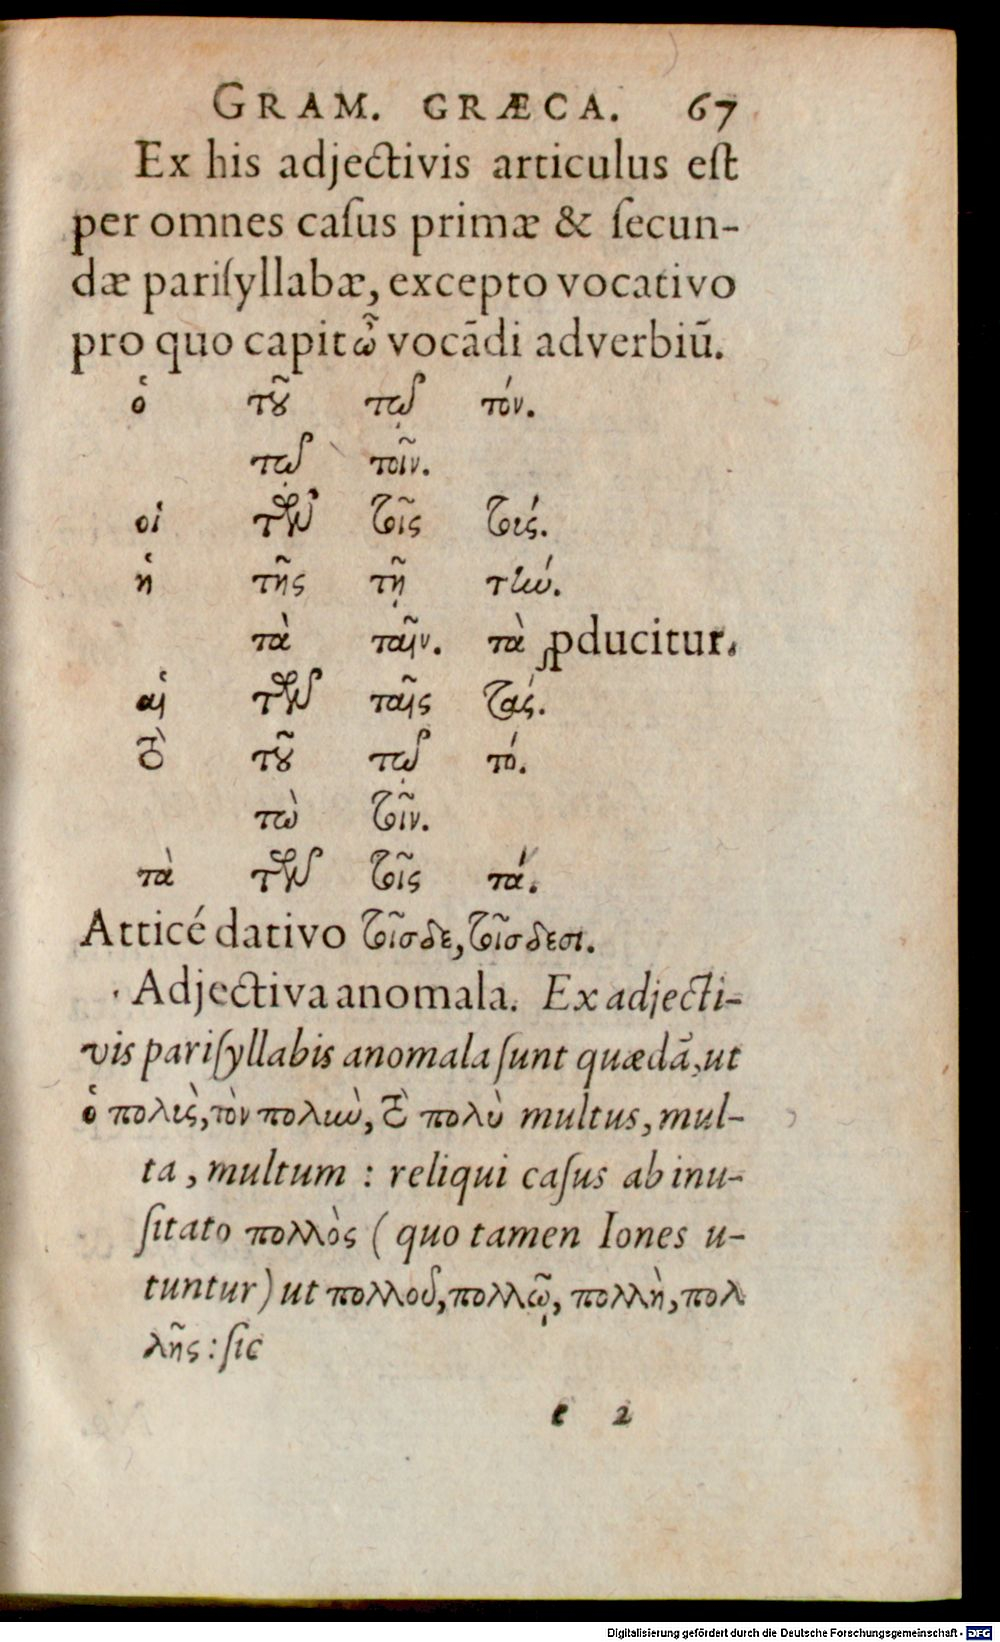 GRAM. GRÆCA. 67
Ex his adjectivis articulus eſt
per omnes caſus primæ & ſecun-
dæ pariſyllabæ, excepto vocativo
pro quo capit ὦ vocādi adverbiū.
ὁ τοῦ τῷ τόν.
τὼ τοῖν.
οἱ τῶν τοῖς τούς.
ἡ τῆς τῇ τήν.
τὰ ταῖν. τὰ ꝓducitur.
αἱ τῶν ταῖς τάς.
τὸ τοῦ τῷ τό.
τὼ τοῖν.
τὰ τῶν τοῖς τά.
Atticé dativo τοῖσδε, τοῖσδεσι.
Adjectiva anomala. Ex adjecti-
vis pariſyllabis anomala ſunt quædā, ut
ὁ πολὺς, τὸν πολιὼ, τὸ πολὺ multus, mul-
ta, multum : reliqui caſus ab inu-
ſitato πολλὸς ( quo tamen Iones u-
tuntur) ut πολλοῦ, πολλῷ, πολλὴ, πολ
λῆς : ſic
e 2
Digitalisierung gefördert durch die Deutsche Forschungsgemeinschaft - DFG